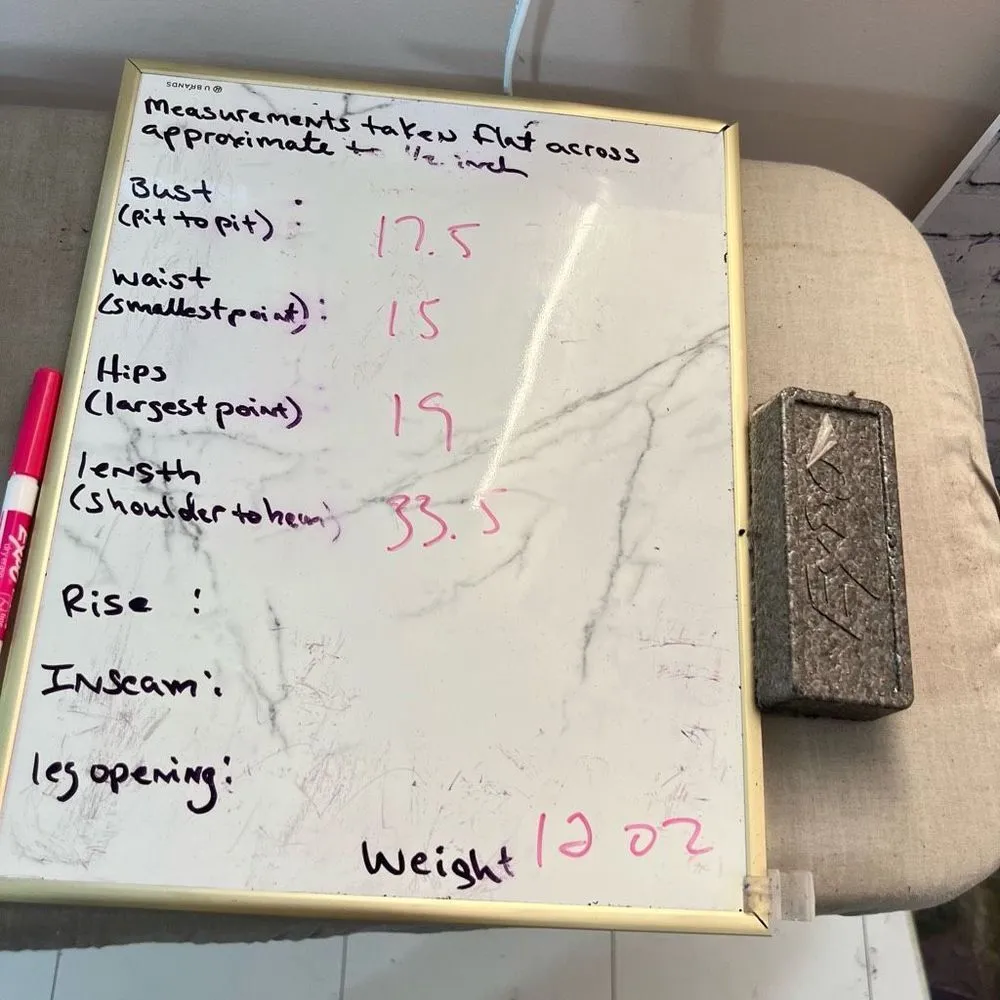 U BRANDS
Measurements taken flat across
approximate + 1/2 inch
Bust :
(pit to pit) 17.5
Waist
(smallest point): 15
Hips
(largest point) 19
length
(shoulder to hem) 33.5
Rise :
Inseam:
leg opening:
Weight 12 oz
EXPO
dry erase